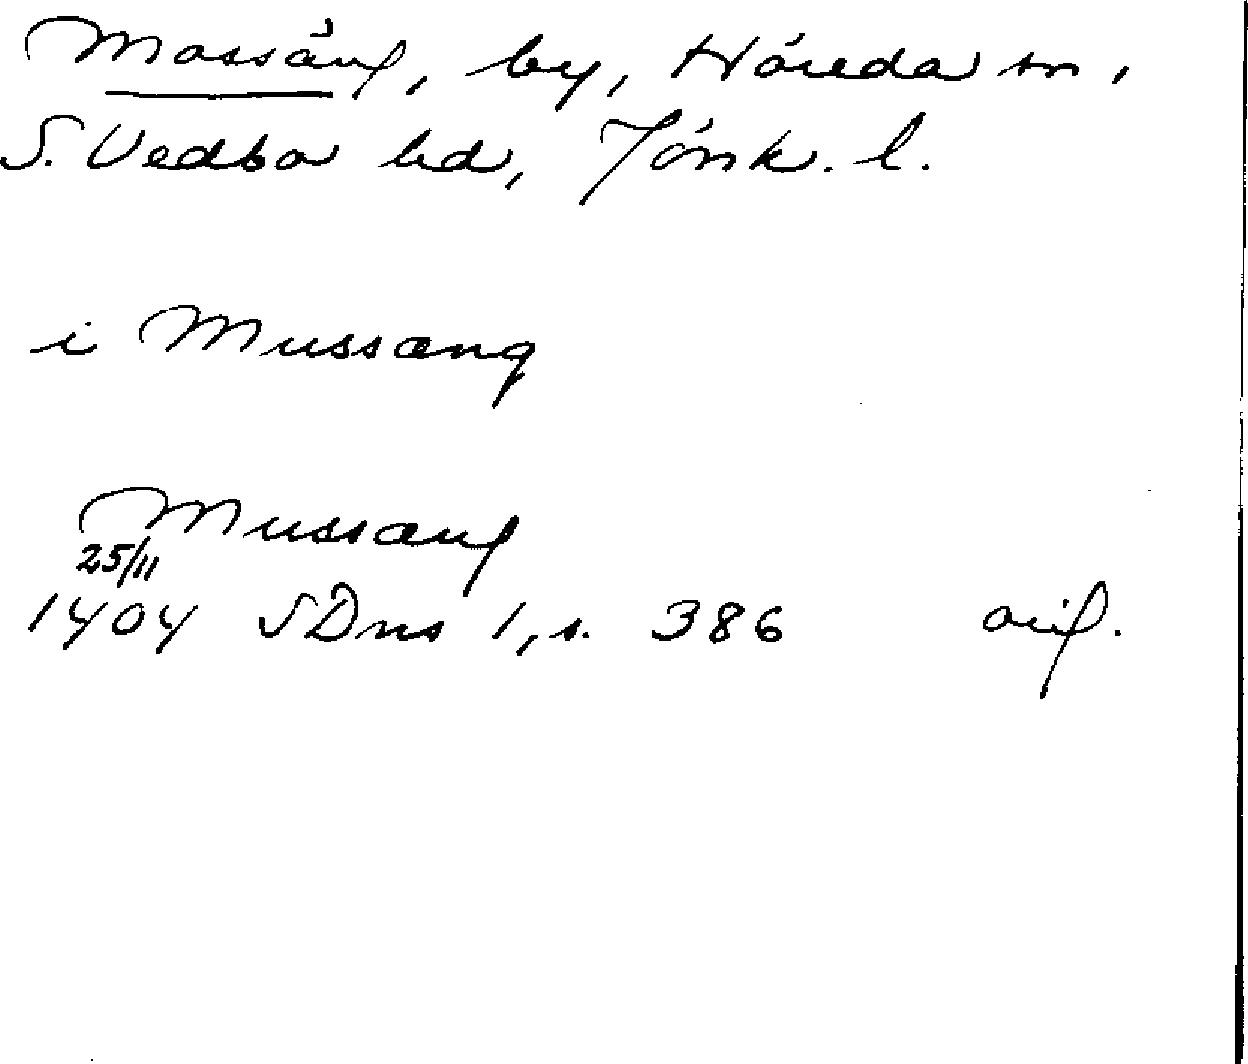 Mossäng, by, Höreda sn,
S. Vedbo hd, Jönk. l.
i Mussæng
Mussæng
25/11
1404 SDns 1, s. 386 orig.